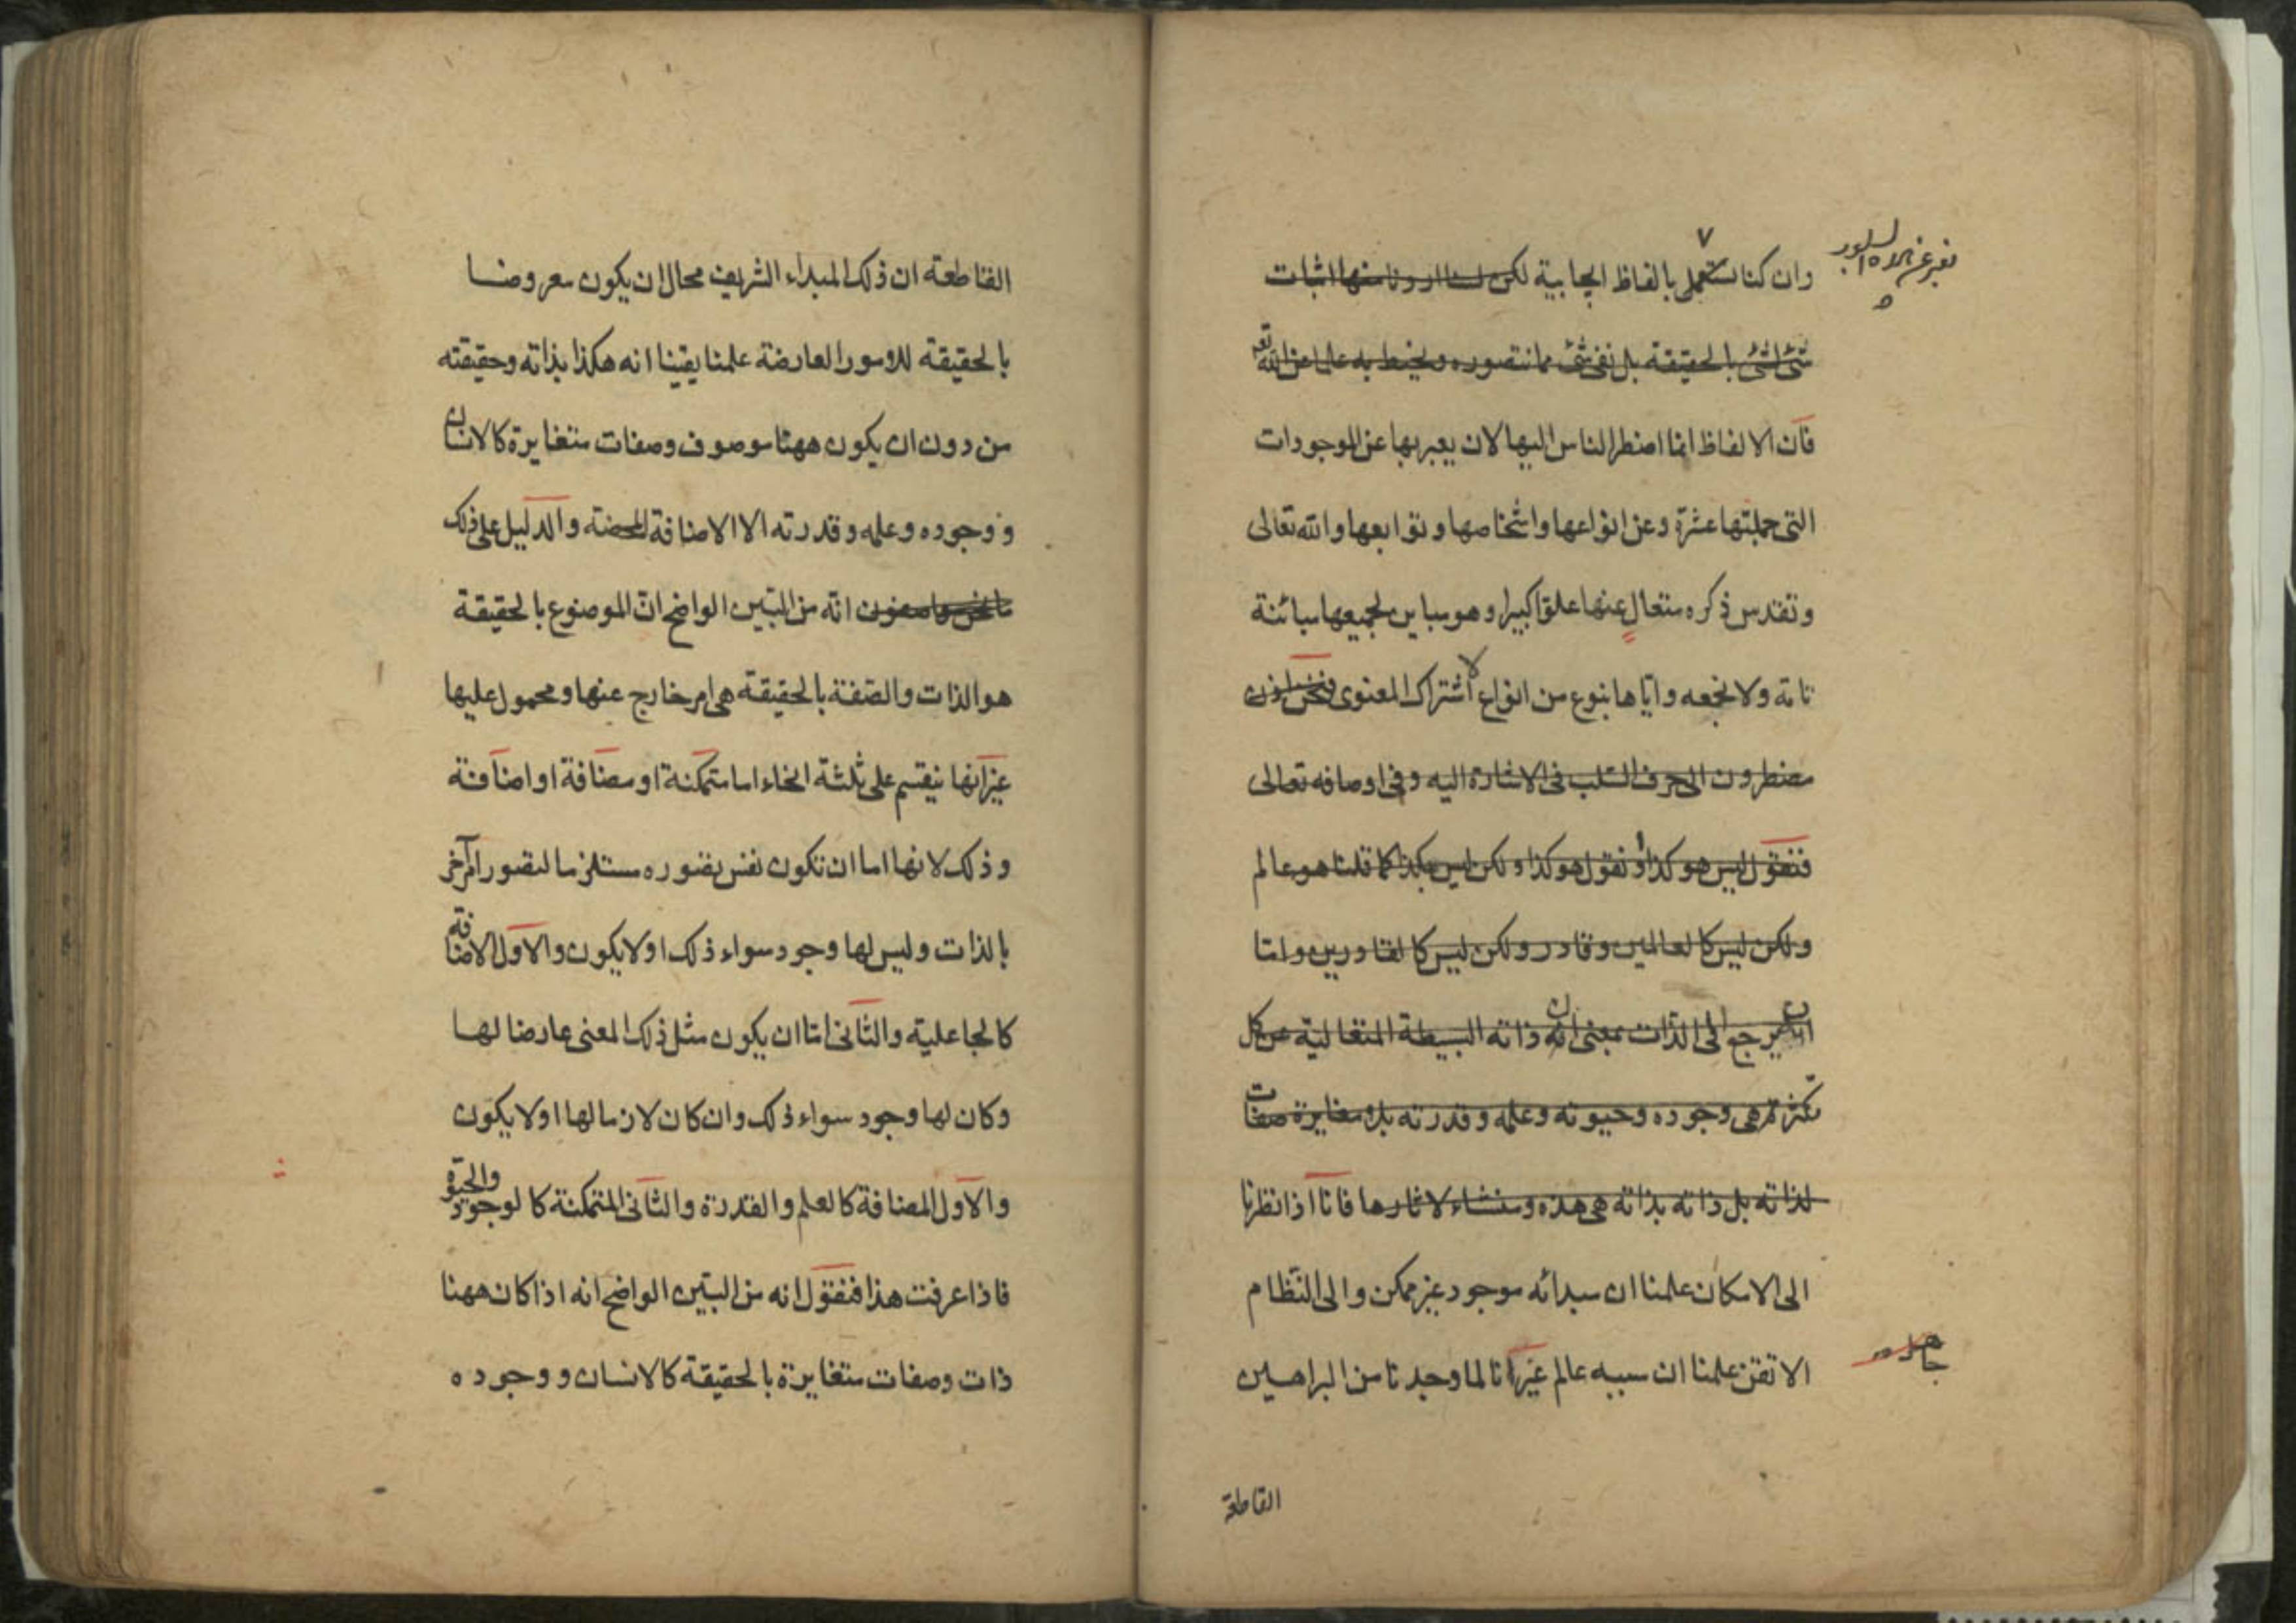 وان كنا نستعمل بالفاظ ايجابية لكن لسنا اردنا منها اثبات
شئ لشئ بالحقيقة بل نفى شئ مما نتصوره ونحيط به علما عن الله تعم
فان الالفاظ انما اضطر الناس اليها لان يعبر بها عن الموجودات
التى جملتها عشرة وعن انواعها واشخاصها وتوابعها والله تعالى
وتقدس ذكره متعال عنها علوا كبيرا وهو مباين لجميعها مباينة
تامة ولا نجمعه واياها بنوع من انواع الاشتراك المعنوى فنحن اذن
مضطرون الى حرف السلب فى الاشارة اليه وفى اوصافه تعالى
فنقول ليس هو كذا او نقول هو كذا ولكن ليس هكذا كما قلنا هو عالم
ولكن ليس كالعالمين وقادر ولكن ليس كالقادرين واما
يرجع الى الذات بمعنى ان ذاته البسيطة المتعالية عن كل
تكثر هى وجوده وحيوته وعلمه وقدرته بلا مغايرة صفات
لذاته بل ذاته بذاته هى هذه ومنشاء لاثارها فانا اذا نظرنا
الى الامكان علمنا ان مبدائه موجود غير ممكن والى النظام
الاتقن علمنا ان سببه عالم غير انا لما وجدنا من البراهين
القاطعة
القاطعة ان ذلك المبداء الشريف محال ان يكون معروضا
بالحقيقة للامور العارضة علمنا يقينا انه هكذا بذاته وحقيقته
من دون ان يكون ههنا موصوف وصفات متغايرة كالانسان
و وجوده وعلمه وقدرته الا الاضافة المحضة والدليل على ذلك
انه من البين الواضح ان الموضوع بالحقيقة
هو الذات والصفة بالحقيقة هى امر خارج عنها ومحمول عليها
غير انها ينقسم على ثلثة انحاء اما متمكنة او مضافة او اضافة
وذلك لانها اما ان تكون نفس تصوره مستلزما لتصور امر آخر
بالذات وليس لها وجود سواء ذلك او لا يكون والاول الاضافة
كالجاعلية والثانى اما ان يكون مثل ذلك المعنى عارضا لها
وكان لها وجود سواء ذلك وان كان لازما لها او لا يكون
والاول المضافة كالعلم والقدرة والثانى المتمكنة كالوجود والحيوة
فاذا عرفت هذا فنقول انه من البين الواضح انه اذا كان ههنا
ذات وصفات متغايرة بالحقيقة كالانسان و وجوده